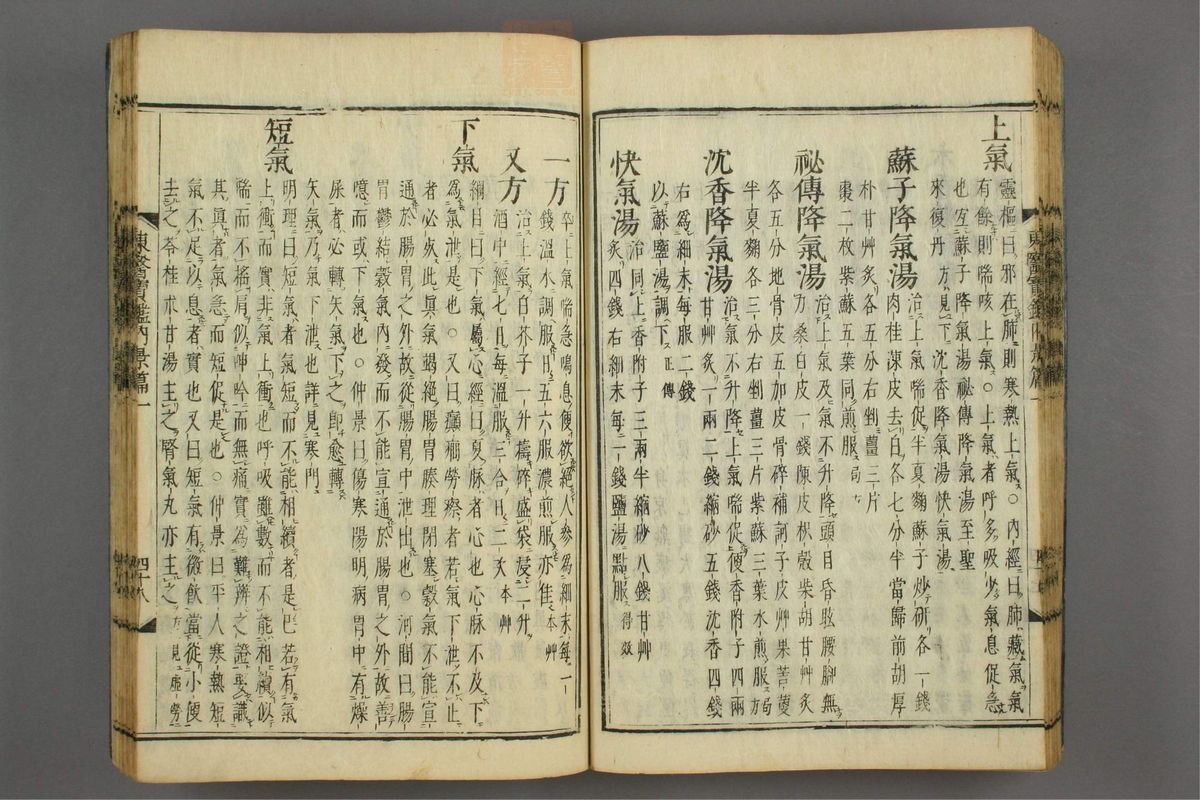 上氣
靈樞曰邪在肺則寒熱上氣○內經曰肺藏氣氣
有餘則喘咳上氣○上氣者呼多吸少氣息促急
也宜蘇子降氣湯祕傳降氣湯至聖
來復丹方見下沈香降氣湯快氣湯
蘇子降氣湯治上氣喘促半夏麴蘇子炒研各一錢
肉桂陳皮去白各七分半當歸前胡厚
朴甘艸炙各五分右剉薑三片
棗二枚紫蘇五葉同煎服局方
祕傳降氣湯治上氣及氣不升降頭目昏眩腰腳無
力桑白皮一錢陳皮枳殼柴胡甘艸炙
各五分地骨皮五加皮骨碎補訶子皮艸果苦蔓
半夏麴各三分右剉薑三片紫蘇三葉水煎服局方
沈香降氣湯治氣不升降上氣喘促便香附子四兩
甘艸炙一兩二錢縮砂五錢沈香四錢
右爲細末每服二錢
以蘇鹽湯調下正傳
快氣湯治同上香附子三兩半縮砂八錢甘艸
炙四錢右細末每一錢鹽湯點服得效
一方卒上氣喘急鳴息便欲絕人參爲細末每一
錢溫水調服日五六服濃煎服亦佳本艸
又方治上氣白芥子一升擣碎盛袋浸二升
酒中經七日每溫服三合日二次本艸
下氣
綱目曰下氣屬心經曰夏脉者心也心脉不及下
爲氣泄是也○又曰癲癎勞瘵者若氣下泄不止
者必死此眞氣竭絕腸胃腠理閉塞穀氣不能宣
通於腸胃之外故從腸胃中泄出也○河間曰腸
胃鬱結穀氣內發而不能宣通於腸胃之外故善
噫而或下氣也○仲景曰傷寒陽明病胃中有燥
屎者必轉矢氣下之卽愈轉
矢氣乃氣下泄也詳見寒門
短氣
明理曰短氣者氣短而不能相續者是巳若有氣
上衝而實非氣上衝也呼吸雖數而不能相續似
喘而不搖肩似呻吟而無痛實爲難辨之證要識
其眞者氣急而短促是也○仲景曰平人寒熱短
氣不足以息者實也又曰短氣有微飮當從小便
去之苓桂朮甘湯主之腎氣丸亦主之方見虛勞
東醫寶鑑內景篇一
四十八